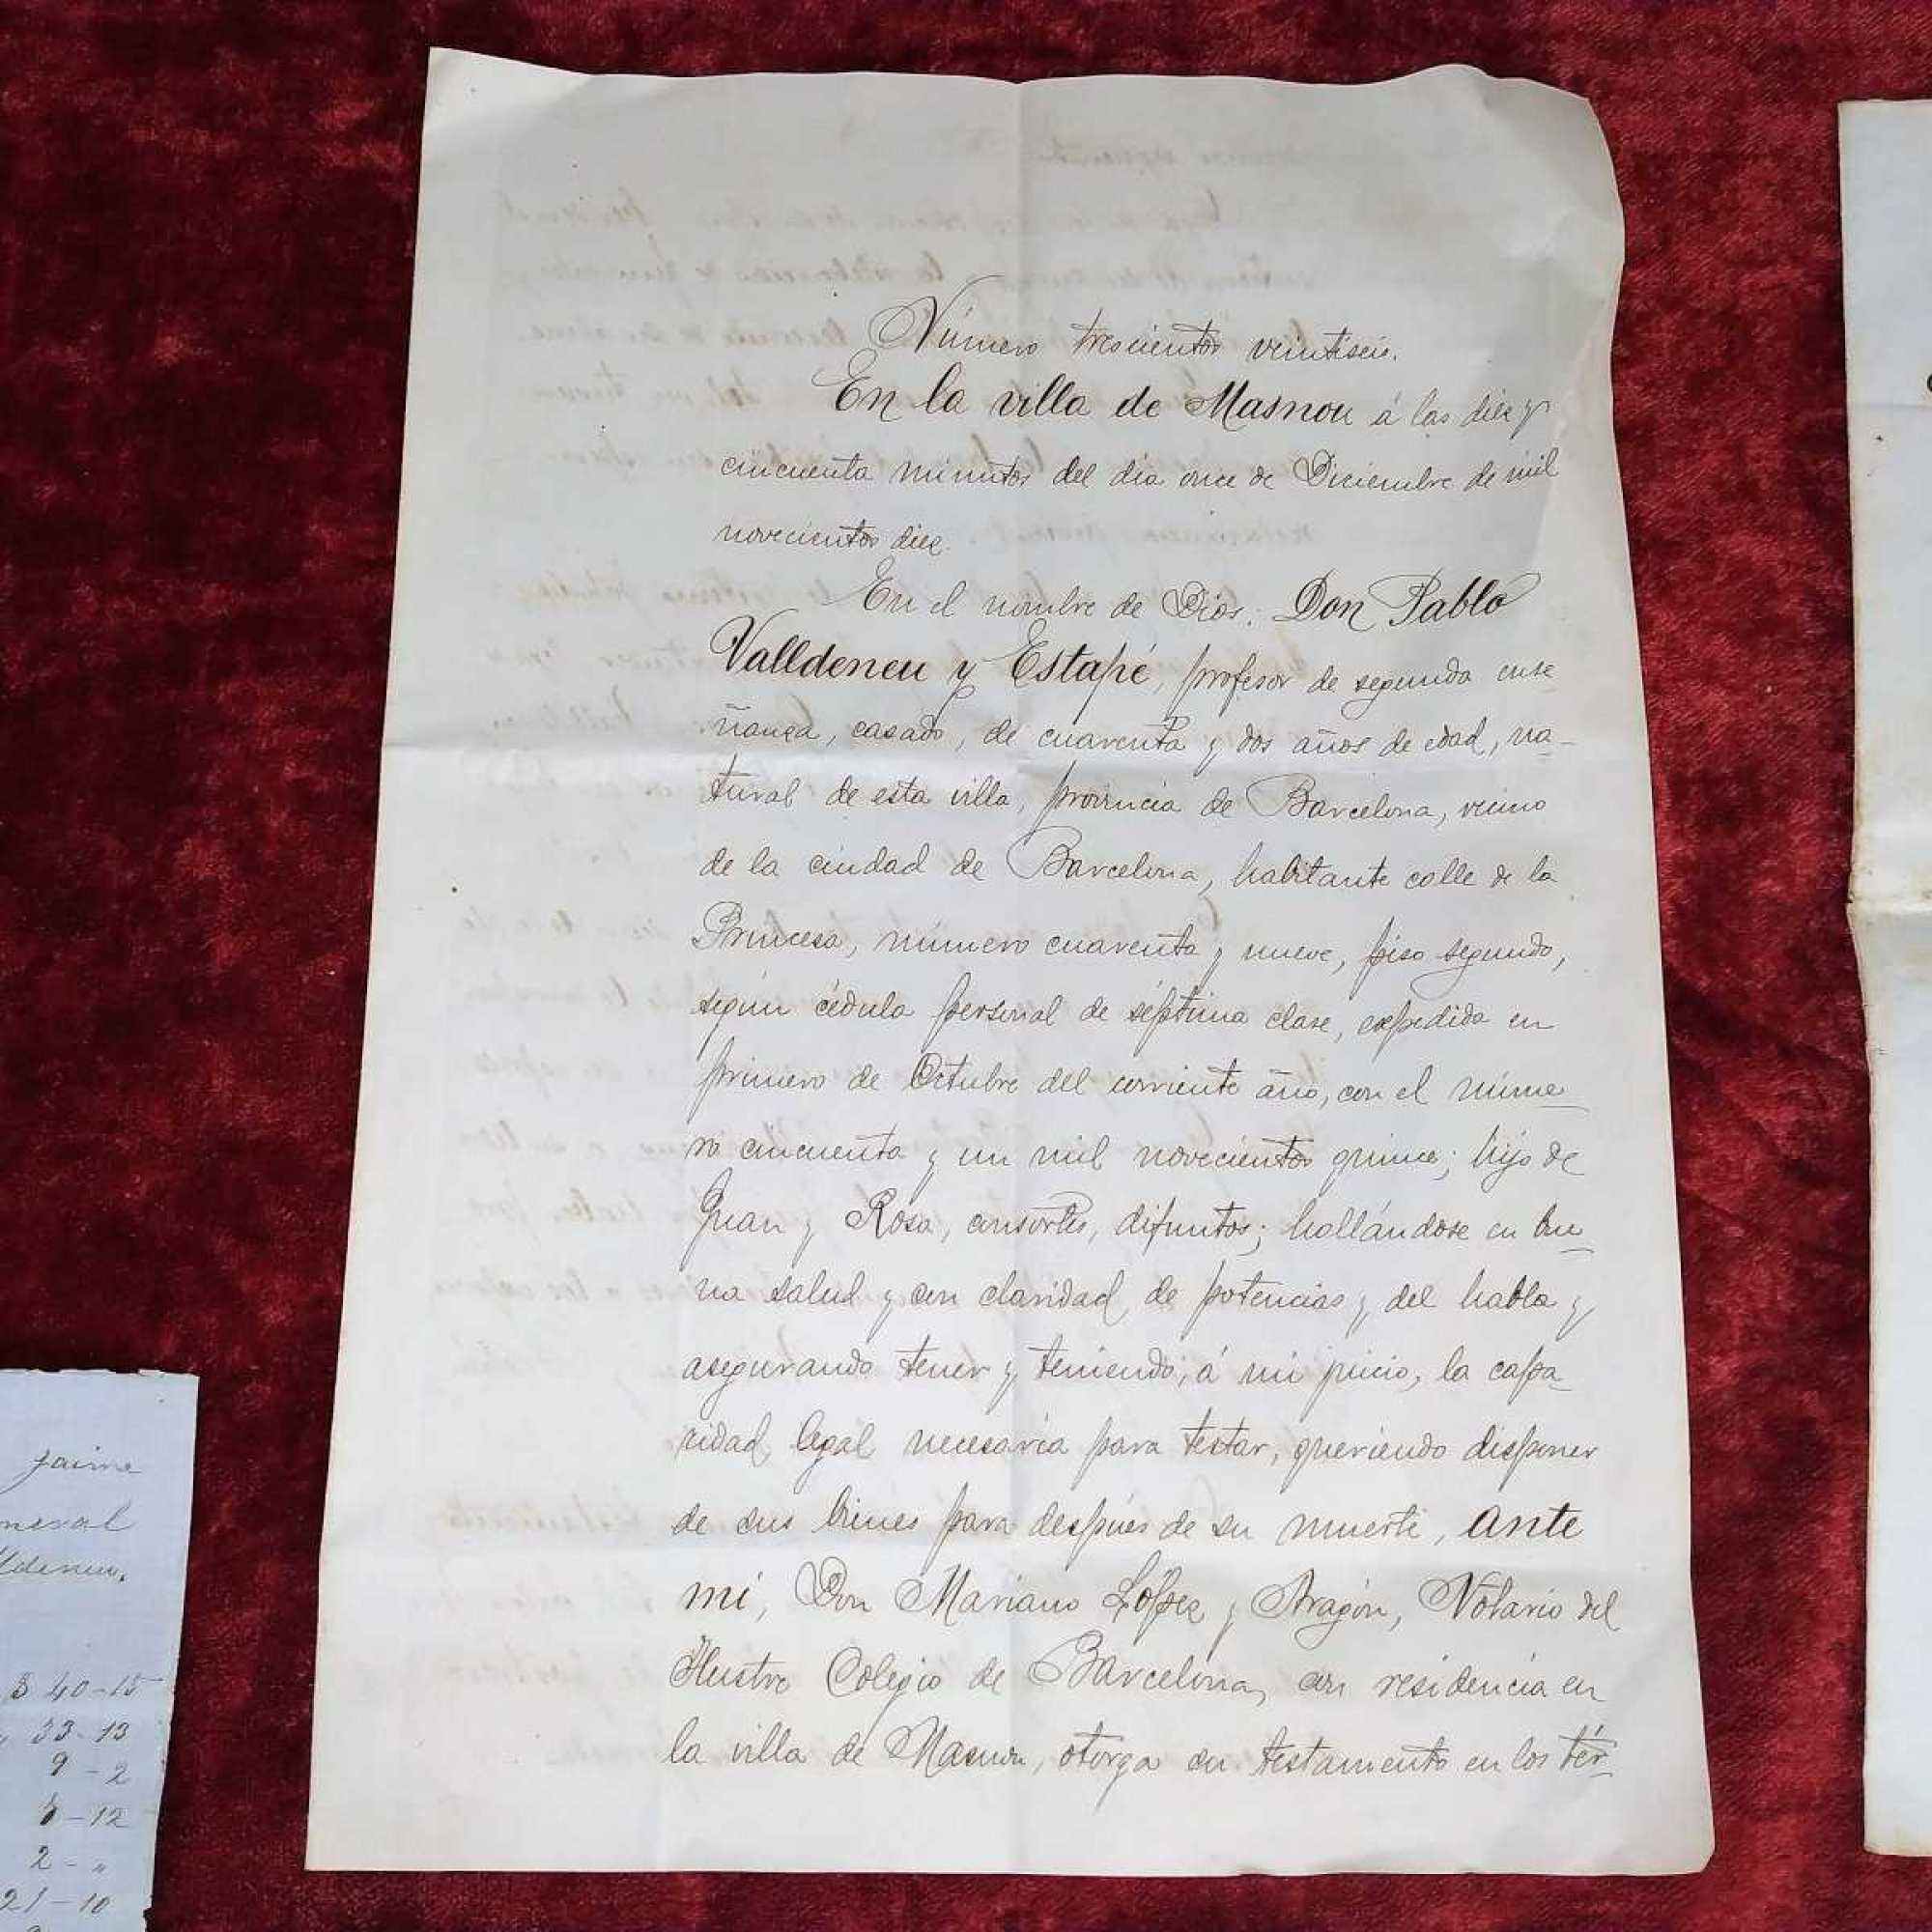 Número trescientos veintiseis.
En la villa de Masnou á las diez y
cincuenta minutos del dia once de Diciembre de mil
novecientos diez.
En el nombre de Dios: Don Pablo
Valldeneu y Estapé, profesor de segunda ense
ñanza, casado, de cuarenta y dos años de edad, na-
tural de esta villa, provincia de Barcelona, vecino
de la ciudad de Barcelona, habitante calle de la
Princesa, número cuarenta y nueve, piso segundo,
según cédula personal de séptima clase, expedida en
primero de Octubre del corriente año, con el núme-
ro cincuenta y un mil novecientos quince; hijo de
Juan y Rosa, consortes, difuntos; hallándose en bue-
na salud y con claridad de potencias y del habla y
asegurando tener y teniendo, á mi juicio, la capa-
cidad legal necesaria para testar, queriendo disponer
de sus bienes para despúes de su muerte, ante
mi, Don Mariano López y Aragón, Notario del
Ilustre Colegio de Barcelona, con residencia en
la villa de Masnou, otorga su testamento en los tér-
Jaime
neral
ldeneu.
3 40-15
33-13
9-2
-12
2-"
21-10